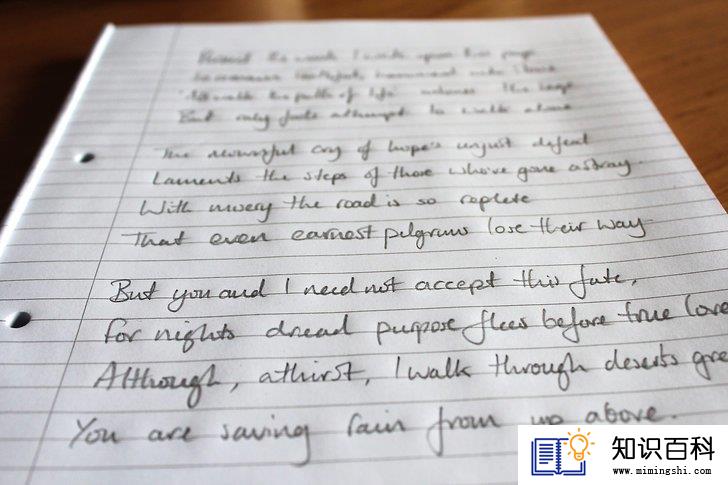 the words I write upon this page
the path of life
But only fools attempt to walk alone
The mournful cry of hope's unjust defeat
Laments the steps of those who've gone astray.
With misery the road is so replete
That even earnest pilgrims lose their way
But you and I need not accept this fate,
For nights dread purpose flees before true love
Although, athirst, I walk through deserts gre
You are saving rain from up above.
知识百科
www.mimingshi.com